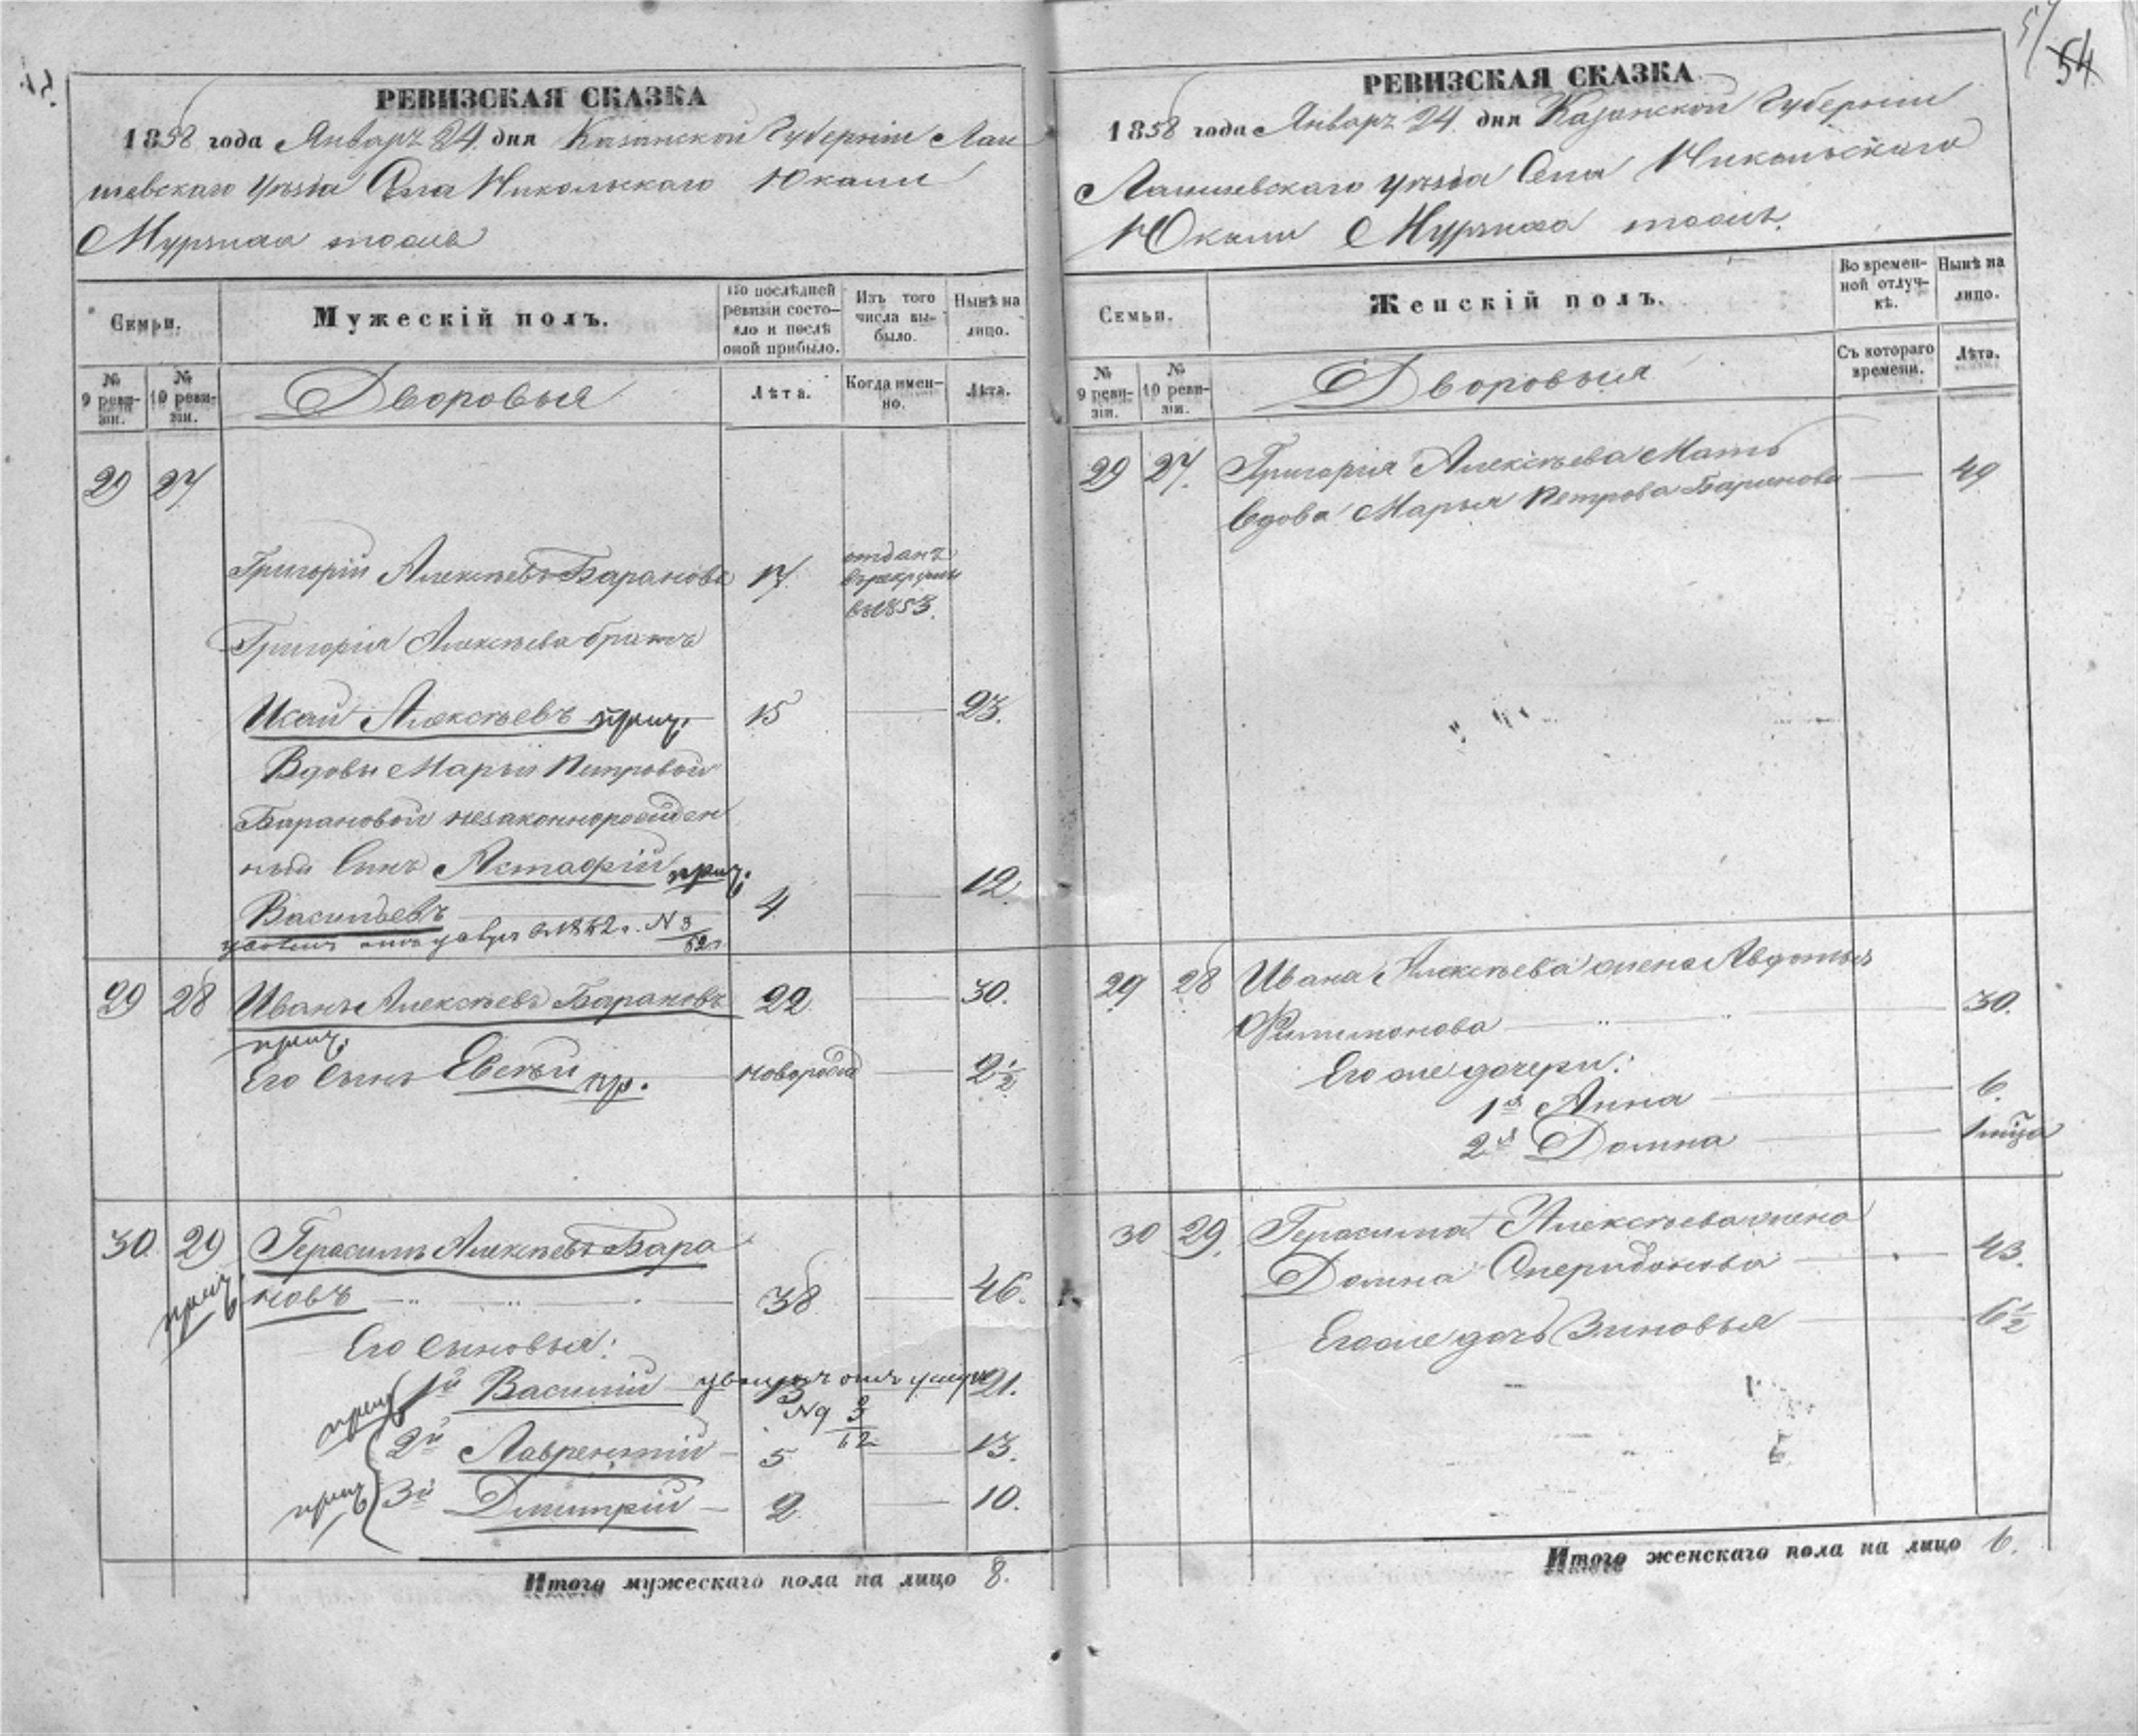 РЕВИЗСКАЯ СКАЗКА
1858 года Январь 24 дня Казанской Губерніи Лаи
шевскаго Уѣзда Села Никольскаго Юкачи
Мурзиха тожъ
Семьи.
Мужескій полъ.
По послѣдней
ревизіи состо-
яло и послѣ
оной прибыло.
Изъ того
числа вы-
было.
Нынѣ на
лицо.
№
9 реви-
зіи.
№
10 реви-
зіи.
Дворовыя
Лѣта.
Когда имен-
но.
Лѣта.
29 27
Григорій Алексѣевъ Барановъ 17. отданъ
въ рекруты
въ 1853.
Григорія Алексѣева братъ
Исай Алексѣевъ 15 23.
Вдовы Марьи Петровой
Барановой незаконнорожден
ный Сынъ Астафій
Васильевъ 4 12.
1862 г. N 3/62
29 28 Иванъ Алексѣевъ Барановъ 22 30.
Его Сынъ Евсѣй пр. новорожд 2 1/2
30 29 Герасимъ Алексѣевъ Бара
новъ 38 46.
Его сыновья:
1й Василій 13 21.
N9 3/62
2й Лаврентій 5 13.
3й Дмитрій 2 10.
Итого мужескаго пола на лицо 8.
54
РЕВИЗСКАЯ СКАЗКА
1858 года Январь 24 дня Казанской Губерніи
Лаишевскаго Уѣзда Села Никольскаго
Юкачи Мурзиха тожъ.
Семьи.
Женскій полъ.
Во времен-
ной отлуч-
кѣ.
Нынѣ на
лицо.
№
9 реви-
зіи.
№
10 реви-
зіи.
Дворовыя
Съ котораго
времени.
Лѣта.
29 27. Григорія Алексѣева Мать
Вдова Марья Петрова Баранова 49
29 28 Ивана Алексѣева жена Авдотья
Филимонова 30.
Его же дочери:
1я Анна 6.
2я Домна
30 29. Герасима Алексѣева жена
Домна Спиридонова 43.
Его же дочь Зиновья 6 1/2
Итого женскаго пола на лицо 6.